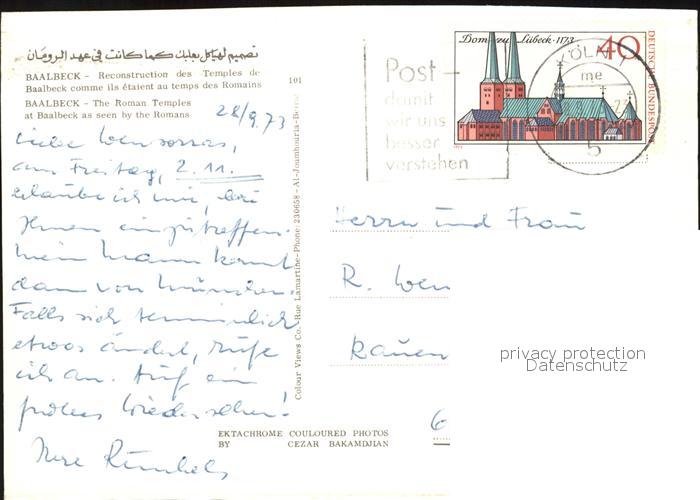 تصميم لهياكل بعلبك كما كانت في عهد الرومان
BAALBECK - Reconstruction des Temples de
Baalbeck comme ils étaient au temps des Romains
BAALBECK - The Roman Temples
at Baalbeck as seen by the Romans
101
28/9.73
am Freitag, 2.11.
erlaube ich mir, bei
Ihnen einzutreffen.
Mein Mann kommt
dann von München.
Falls sich terminlich
etwas ändert, rufe
ich an. Auf ein
frohes Wiedersehen!
Ihre
Colour Views Co.-Rue Lamartine-Phone: 230658 - Al-Joumhouria-Beyrut
EKTACHROME COULOURED PHOTOS
BY CEZAR BAKAMDJIAN
Post-
damit
wir uns
besser
verstehen
KÖLN
me
5
Dom zu Lübeck · 1173
40
DEUTSCHE BUNDESPOST
Herrn und Frau
R. Wen
Kauen
6
privacy protection
Datenschutz